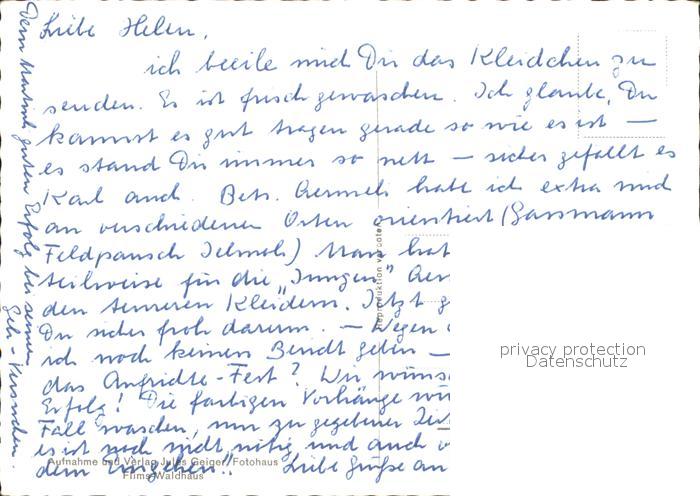 Liebe Helen,
ich beeile mich Dir das Kleidchen zu
senden. Es ist frisch gewaschen. Ich glaube, Du
kannst es gut tragen gerade so wie es ist —
es stand Dir immer so nett — sicher gefällt es
Karl auch. Betr. Aermeln habe ich extra mich
an verschiedenen Orten orientiert (Gassmann
Feldpausch Jelmoli) Man hat
teilweise für die „Jungen" Aer
den teureren Kleidern. Jetzt g
Du sicher froh darum. — Wegen
ich noch keinen Bericht geben —
das -Fest? Wir wüns
Erfolg! Die farbigen Vorhänge wü
Fall waschen, nur zu gegebener Zeit
es ist noch nicht nötig und auch
dem Eingehen!! Liebe Grüsse an
guten Erfolg bei seinen
Reproduktion verboten
Aufnahme und Verlag Jules Geiger, Fotohaus
Flims-Waldhaus
privacy protection
Datenschutz